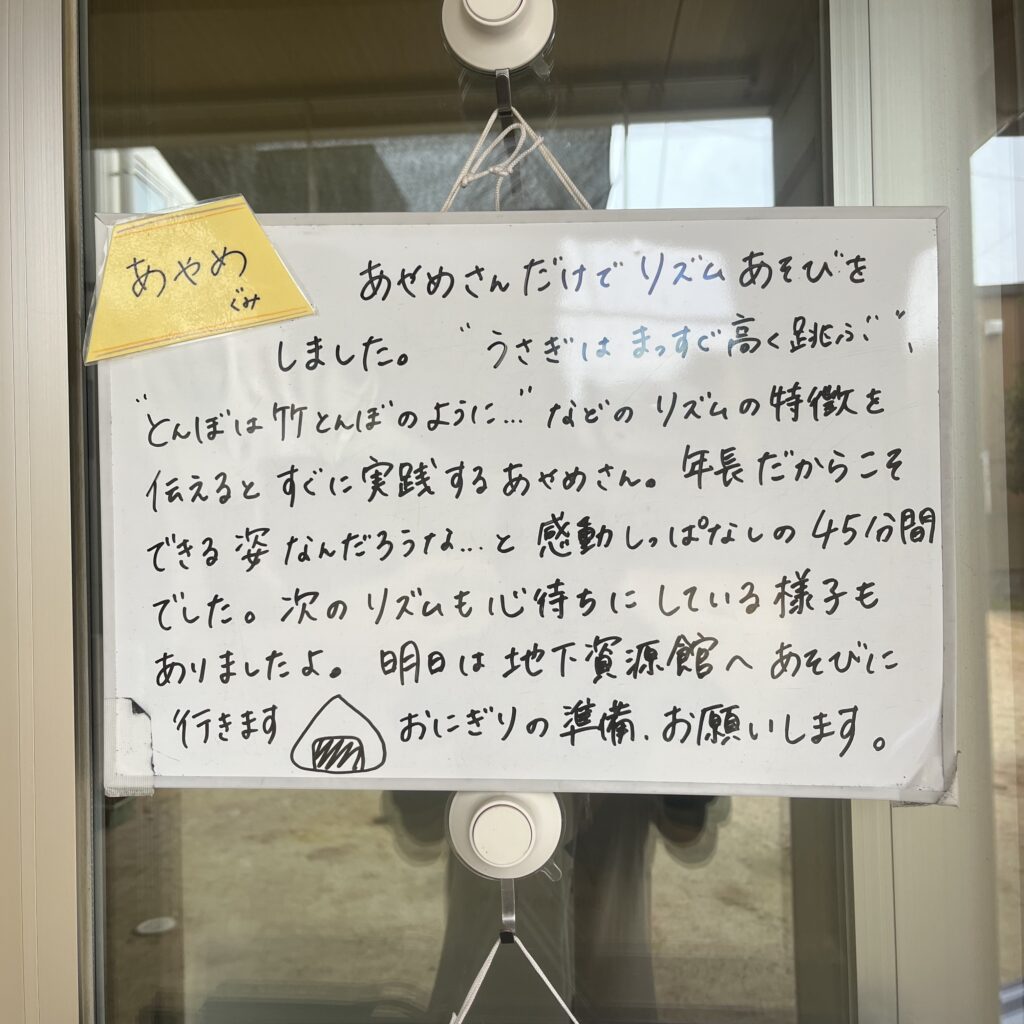 あやめ
ぐみ
あやめさんだけで リズムあそびを
しました。 “うさぎは まっすぐ高く跳ぶ”、
“とんぼは竹とんぼのように…” などの リズムの特徴を
伝えると すぐに実践するあやめさん。年長だからこそ
できる姿なんだろうな…と 感動しっぱなしの 45分間
でした。次の リズムも心待ちにしている様子も
ありましたよ。 明日は地下資源館へ あそびに
行きます おにぎりの準備、お願いします。